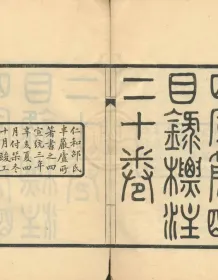 四庫簡明
目錄標注
二十卷
仁和邵氏
半巖廬所
著書之四
宣統三年
辛亥夏四
月付槧冬
十月竣工